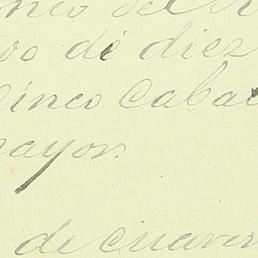 nco del
vo de diez
Cinco Cabal
mayor.
de cuaren